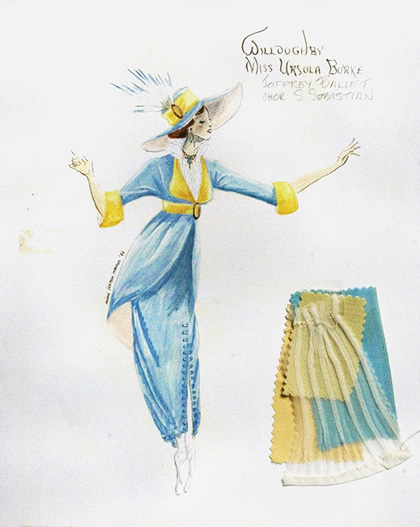 WILLOUGHBY
MISS URSULA BURKE
JOFFREY BALLET
CHOR: S. SEBASTIAN